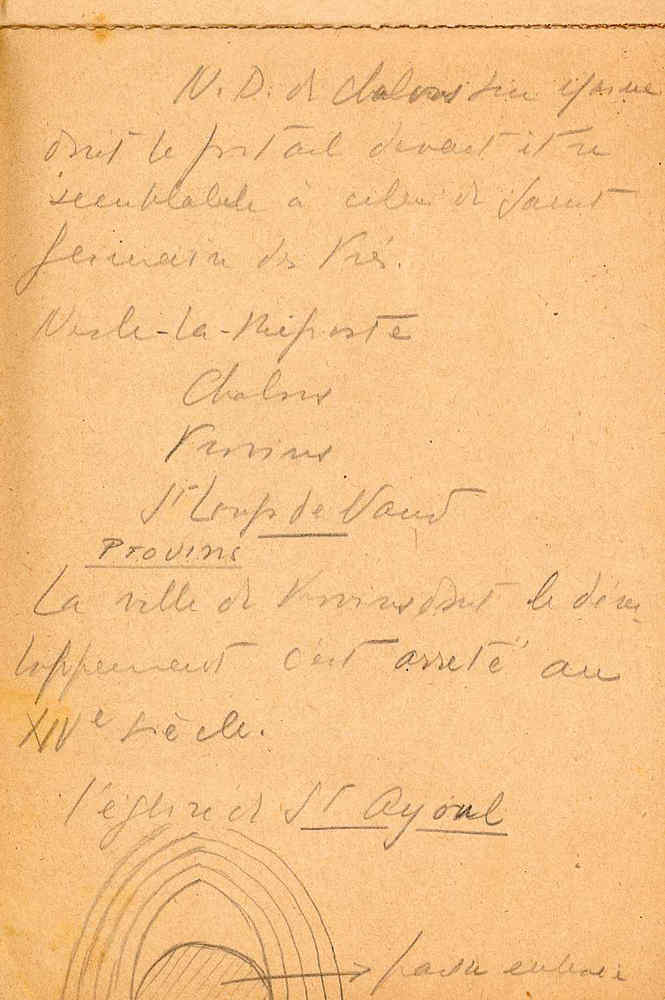 N. D. de Chalons sur Marne
dont le portail devait être
semblable à celui de Saint
Germain des Prés.
Nesle-la-Reposte
Chalons
Provins
St Loup de Naud
Provins
La ville de Provins dont le déve
loppement c'est arreté au
XIVe siècle.
l'église de St Ayoul
partie